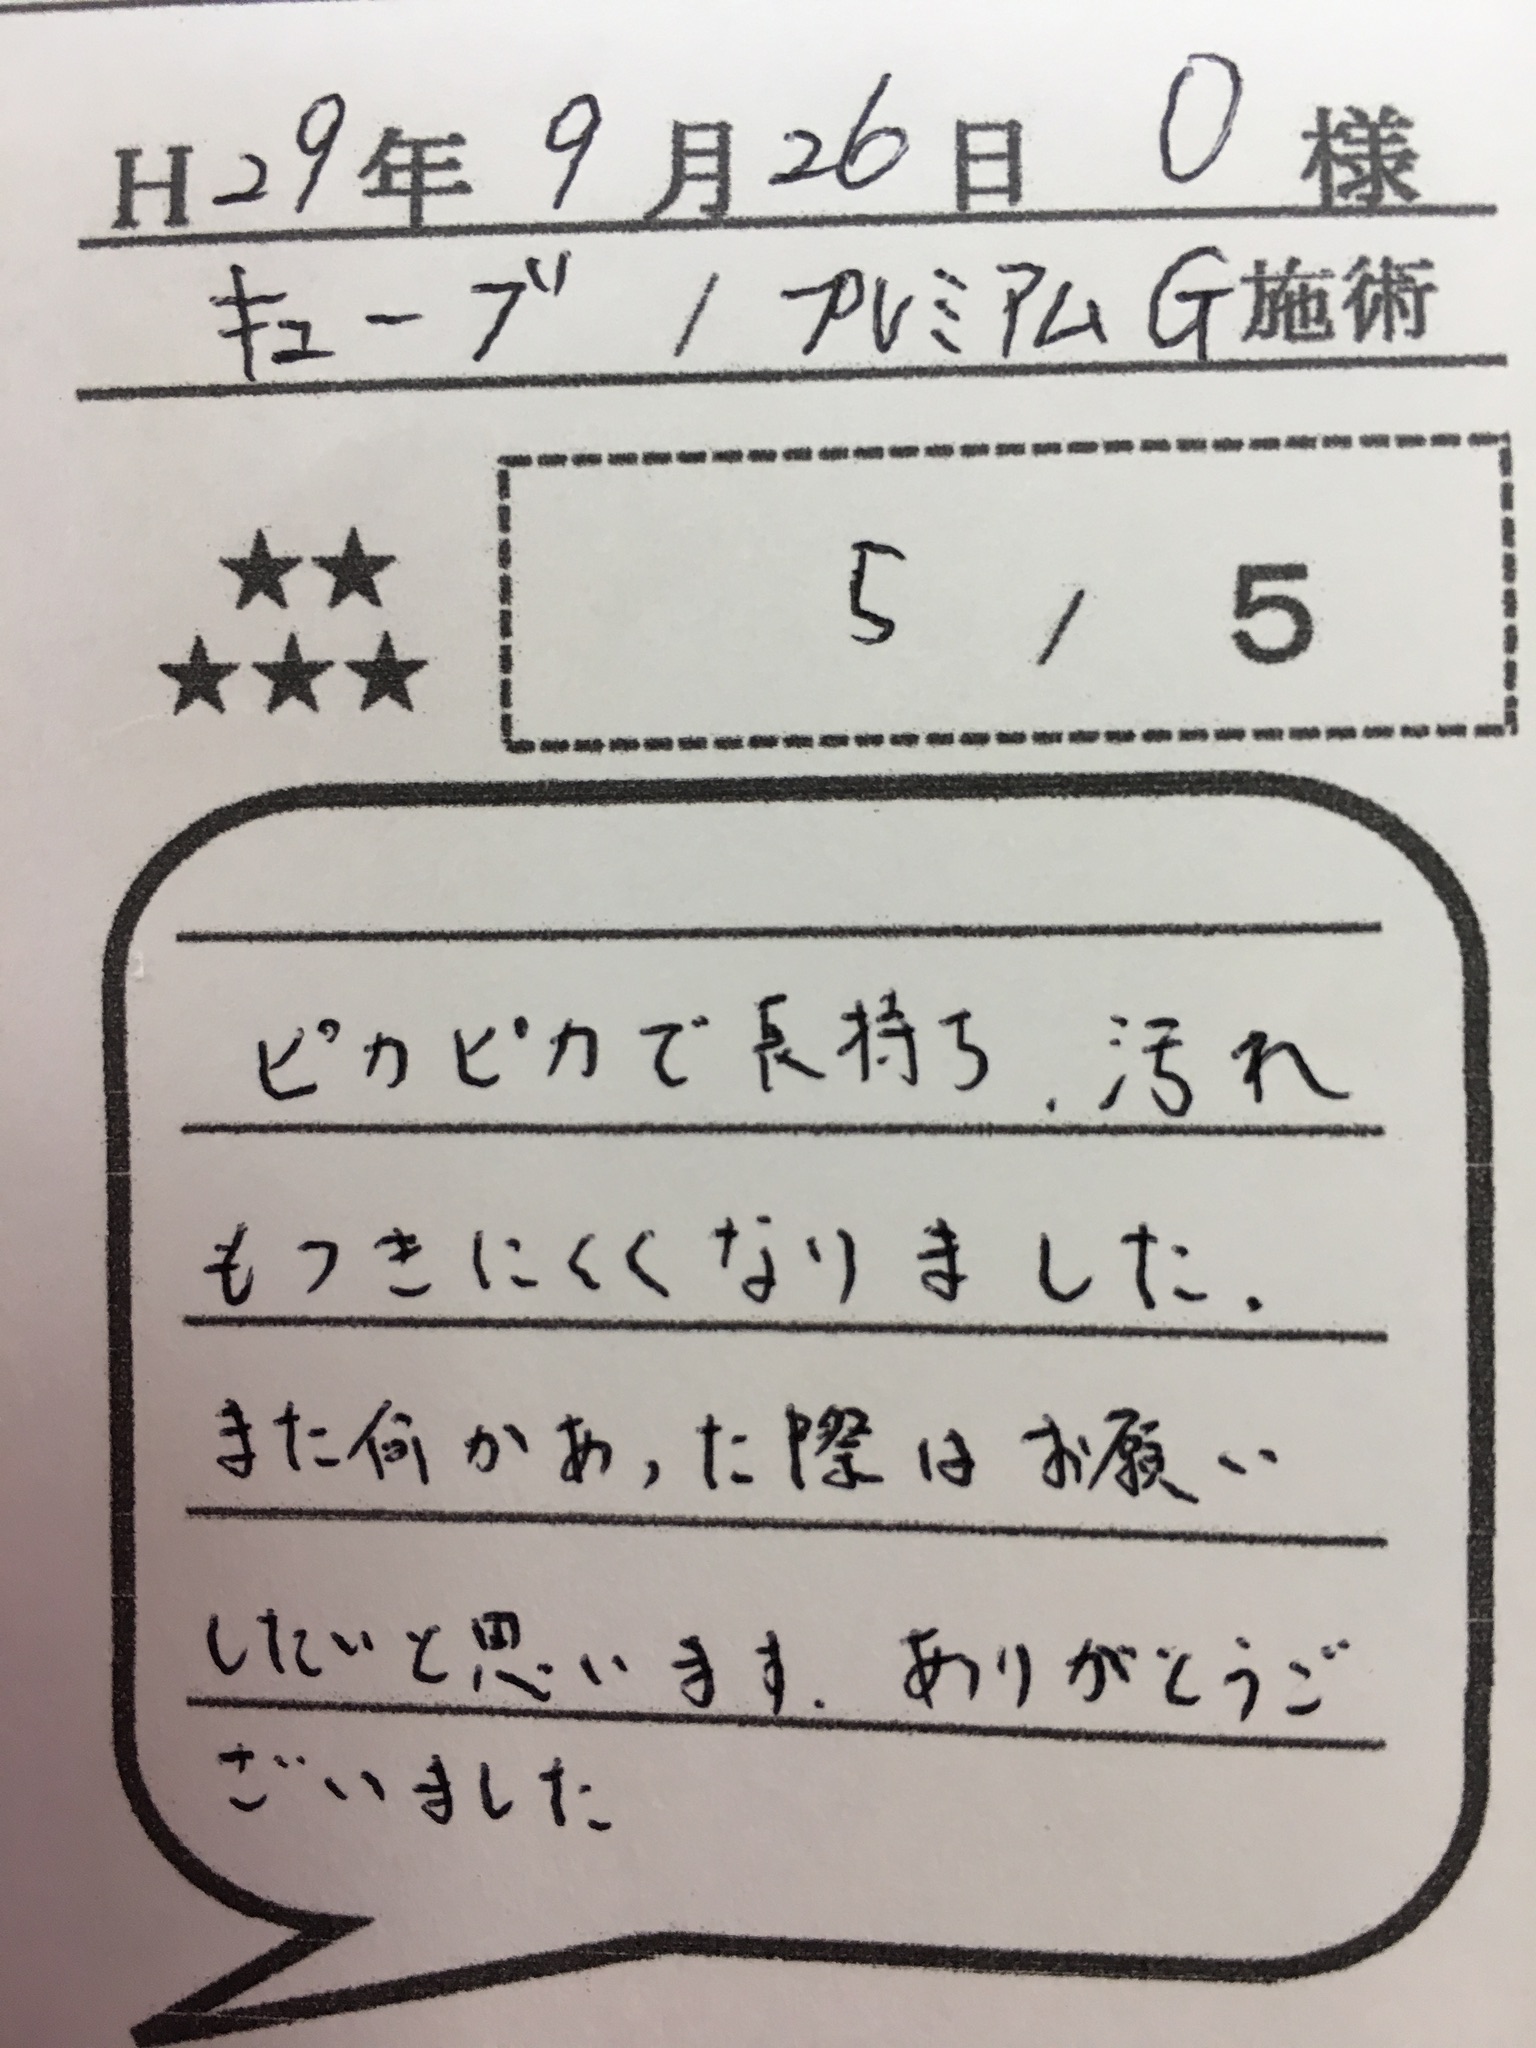 H29年 9月26日 O様
キューブ / プレミアムG施術
★★
★★★
5 / 5
ピカピカで長持ち、汚れ
もつきにくくなりました。
また何かあった際はお願い
したいと思います。ありがとうご
ございました